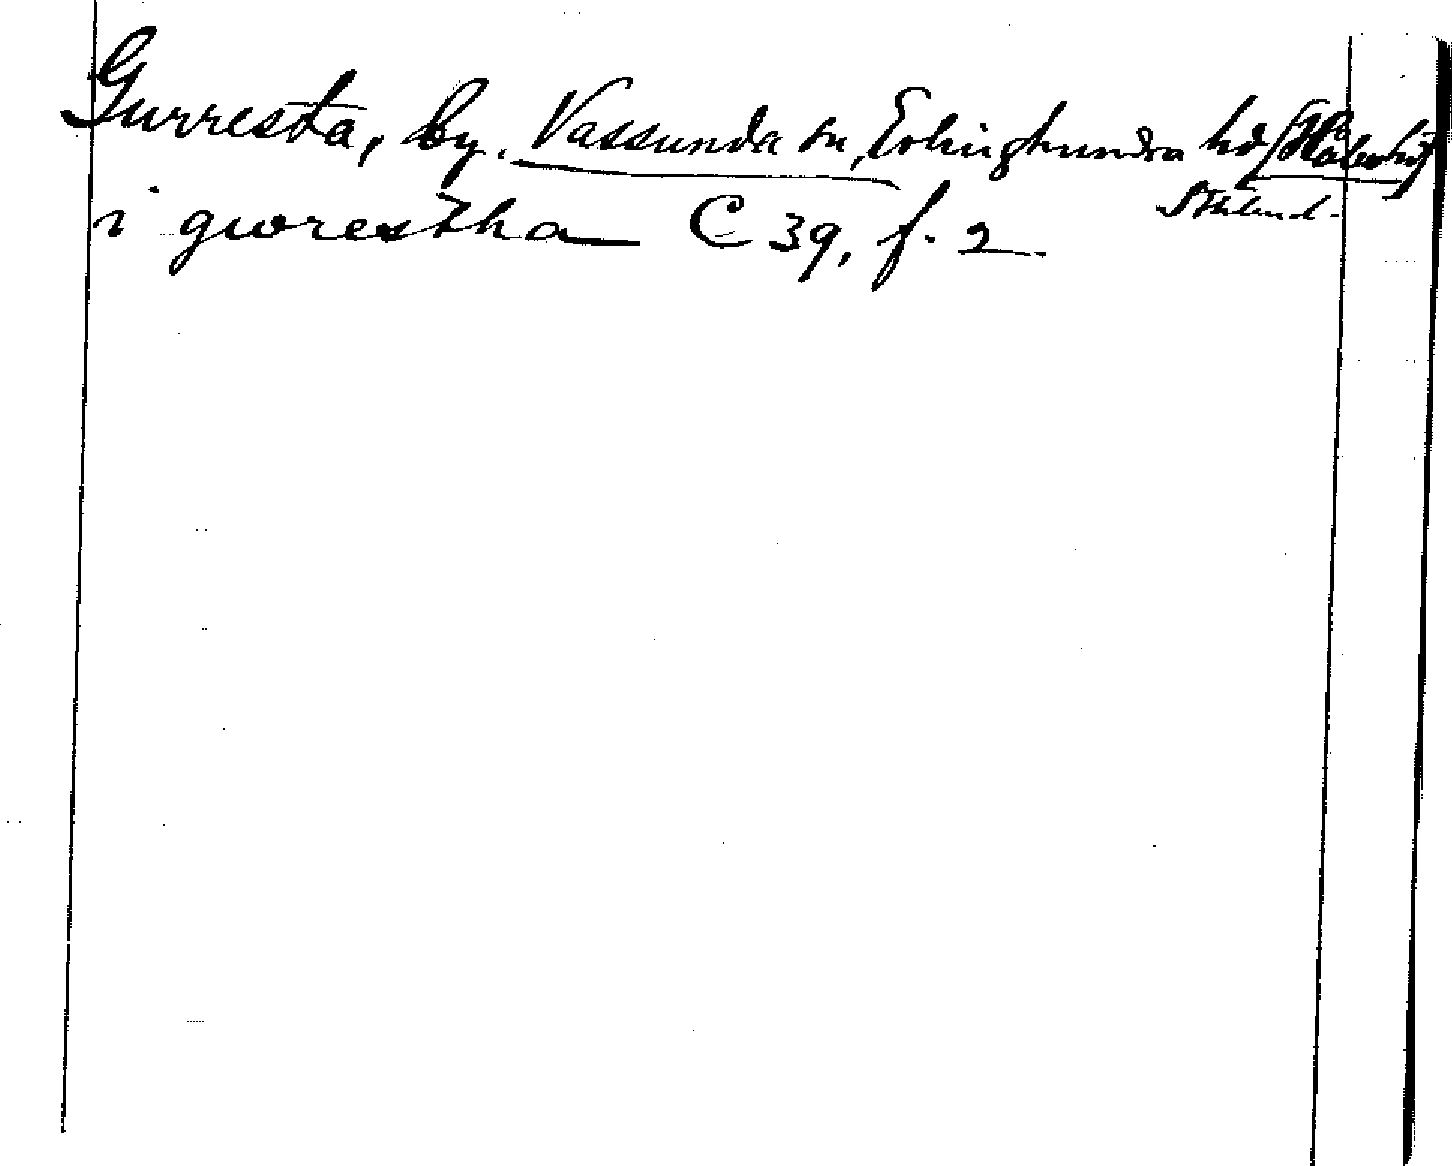 Gurresta, by. Vassunda sn, Erlinghundra hd
Sthlms l.
i gworestha C 39, f. 2